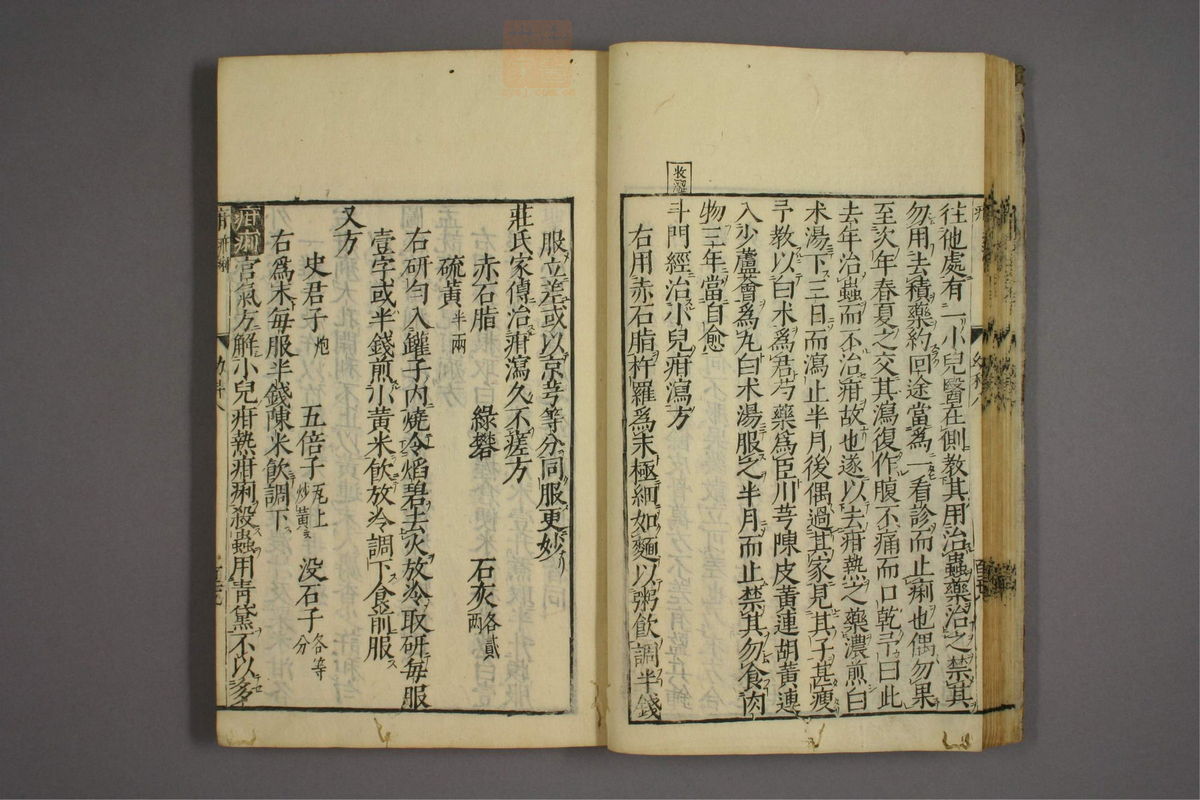 往他處有一小兒醫在側教其用治蟲藥治之禁其
勿用去積藥約回途當為一看診而止痢也偶勿果
至次年春夏之交其瀉復作腹不痛而口乾予曰此
去年治蟲而不治疳故也遂以去疳熱之藥濃煎白
术湯下三日而瀉止半月後偶過其家見其子甚瘦
予教以白术為君芍藥為臣川芎陳皮黃連胡黃連
入少蘆薈為丸白术湯服之半月而止禁其勿食肉
物三年當自愈
收澀
斗門經治小兒疳瀉方
右用赤石脂杵羅為末極細如麵以粥飲調半錢
服立差或以京芎等分同服更妙
莊氏家傳治疳瀉久不瘥方
赤石脂 綠礬 石灰各貳兩
硫黃半兩
右研勻入罐子內燒令焰碧去火放冷取研每服
壹字或半錢煎小黃米飲放冷調下食前服
又方
史君子炮 五倍子瓦上炒黃 没石子各等分
右為末每服半錢陳米飲調下
疳痢宮氣方解小兒疳熱疳痢殺蟲用青黛不以多
幼科八